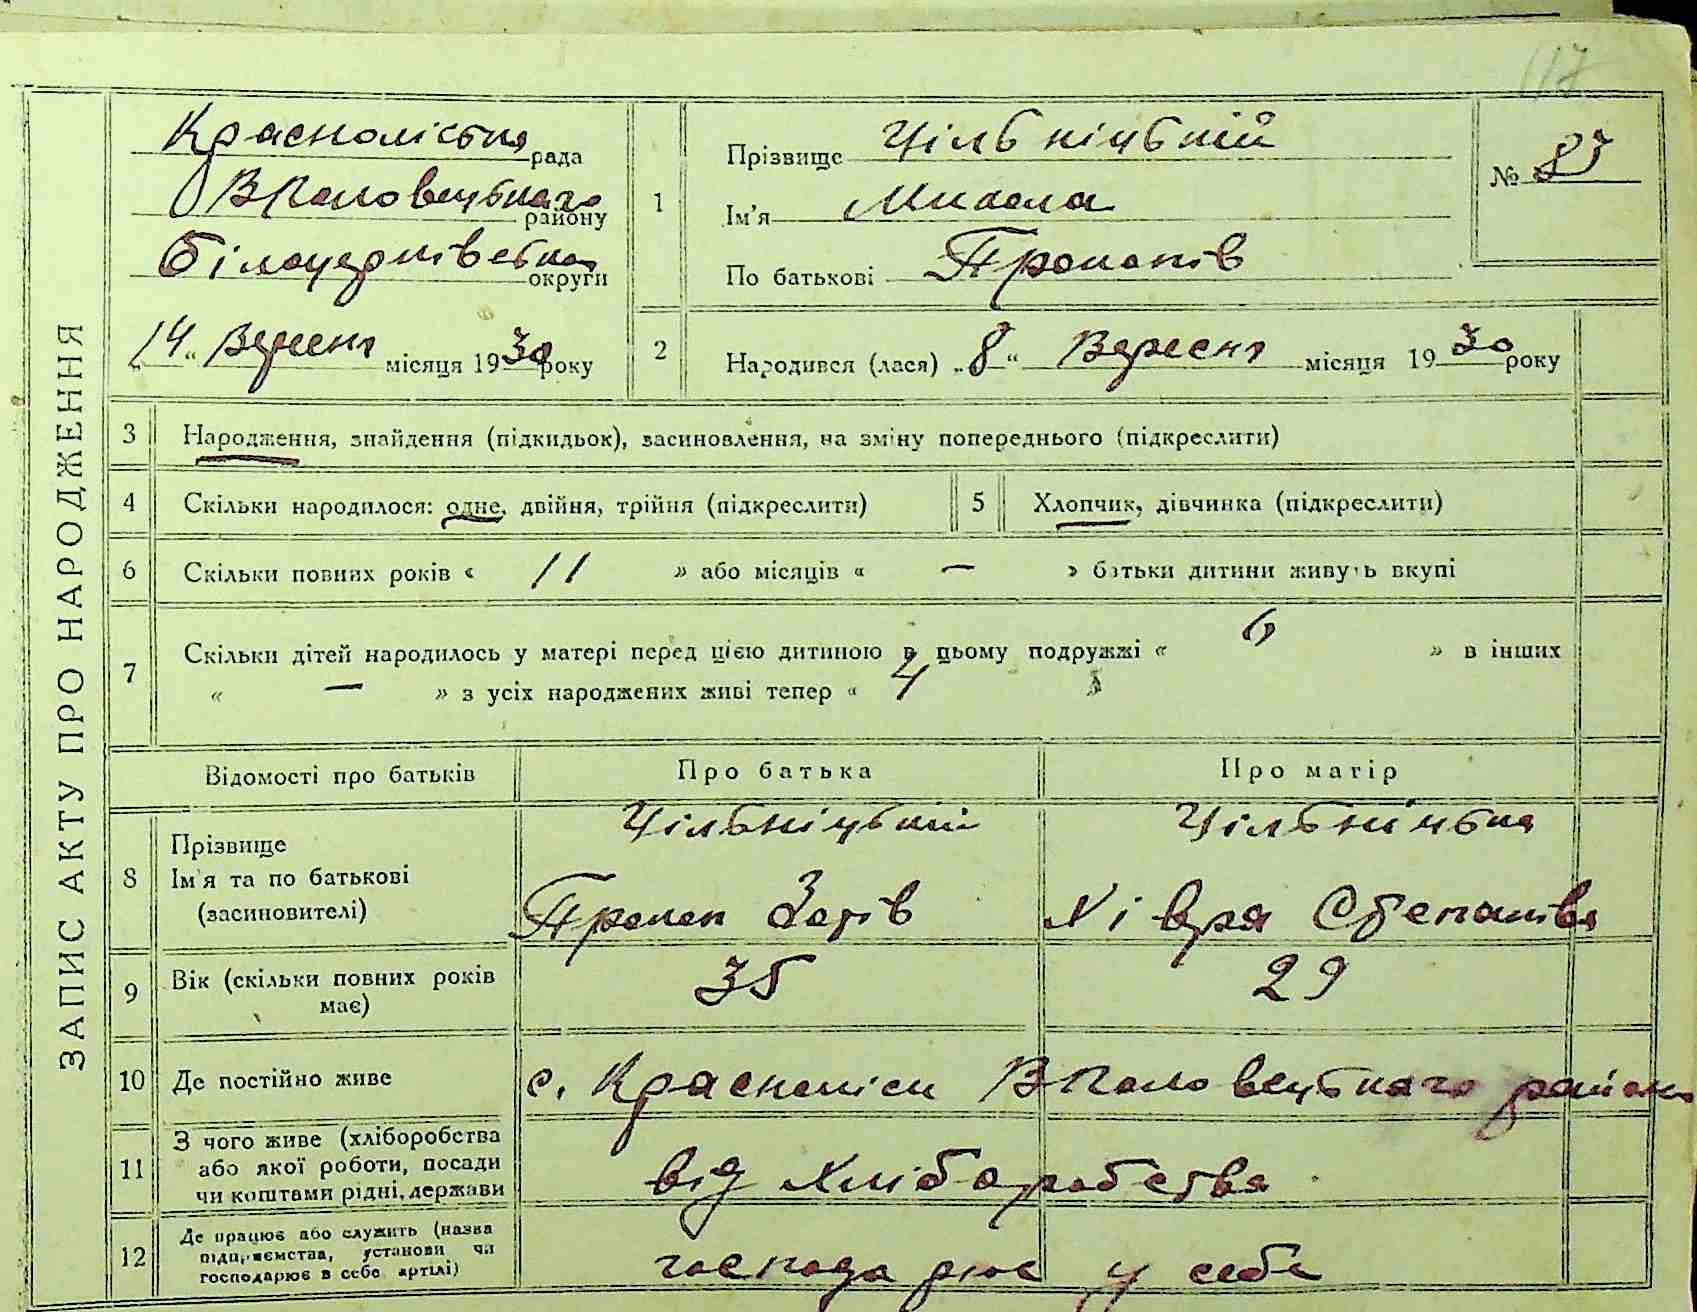 117
ЗАПИС АКТУ ПРО НАРОДЖЕННЯ
Красноліська рада
ВПоловецького району
Білоцерківська округи
„14“ Вересня місяця 1930 року
1
Прізвище Цільніцький
Ім'я Микола
По батькові Прокопів
№ 87
2
Народився (лася) „8“ Вересня місяця 1930 року
3 Народження, знайдення (підкидьок), засиновлення, на зміну попереднього (підкреслити)
4 Скільки народилося: одне, двійня, трійня (підкреслити)
5 Хлопчик, дівчинка (підкреслити)
6 Скільки повних років « 11 » або місяців « — » батьки дитини живуть вкупі
7 Скільки дітей народилось у матері перед цією дитиною в цьому подружжі « 6 » в інших
« — » з усіх народжених живі тепер « 4 »
Відомості про батьків Про батька Про матір
8 Прізвище
Ім'я та по батькові
(засиновителі)
Цільніцький
Прокоп
Цільніцька
Хівря Степанівна
9 Вік (скільки повних років
має)
35 29
10 Де постійно живе с. Красноліси ВПоловецького району
11 З чого живе (хліборобства
або якої роботи, посади
чи коштами рідні, держави
від Хліборобства
12 Де працює або служить (назва
підприємства, установи чи
господарює в себе артілі)
господарює у себе